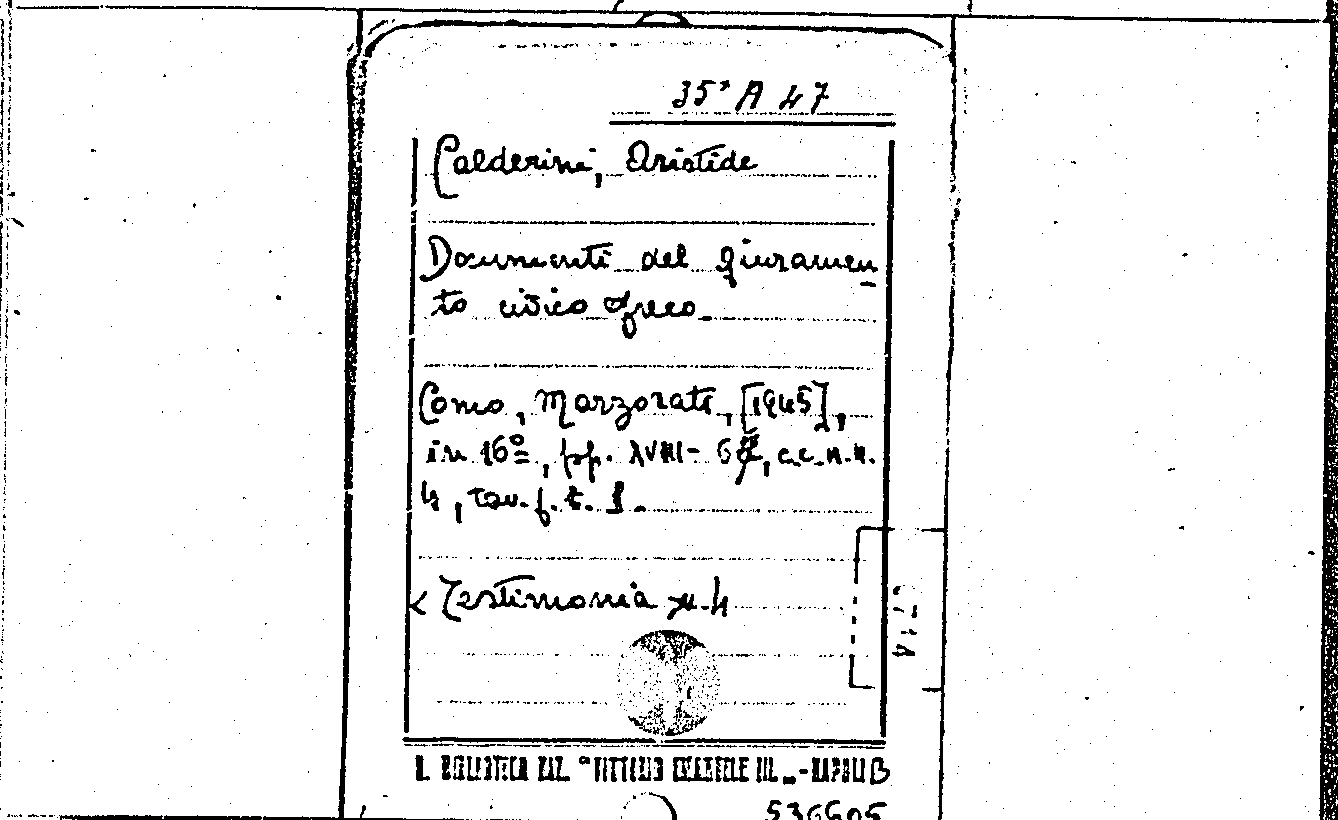 35* A 47
Calderini, Aristide
Documenti del giuramen
to civico greco.
Como, Marzorati, [1945],
in 16º, pp. XVIII-6 , c.c.n.n.
4, tav. f. t. 1.
< Testimonia n. 4
B. BIBLIOTECA NAZ. "VITTORIO EMANUELE III" - NAPOLI B
536605